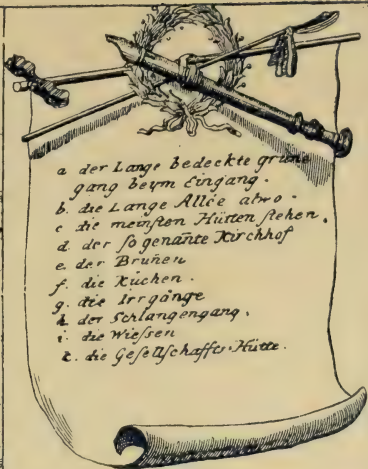 a der Lange bedeckte grüne
gang beym Eingang.
b. die Lange Allée alwo.
c die meinsten Hütten stehen.
d. der so genañte Kirchhof
e. der Bruñen
f. die Küchen.
g. die Irrgänge
h der Schlangengang.
i. die Wiessen
k. die Gesellschaffts-Hütte.